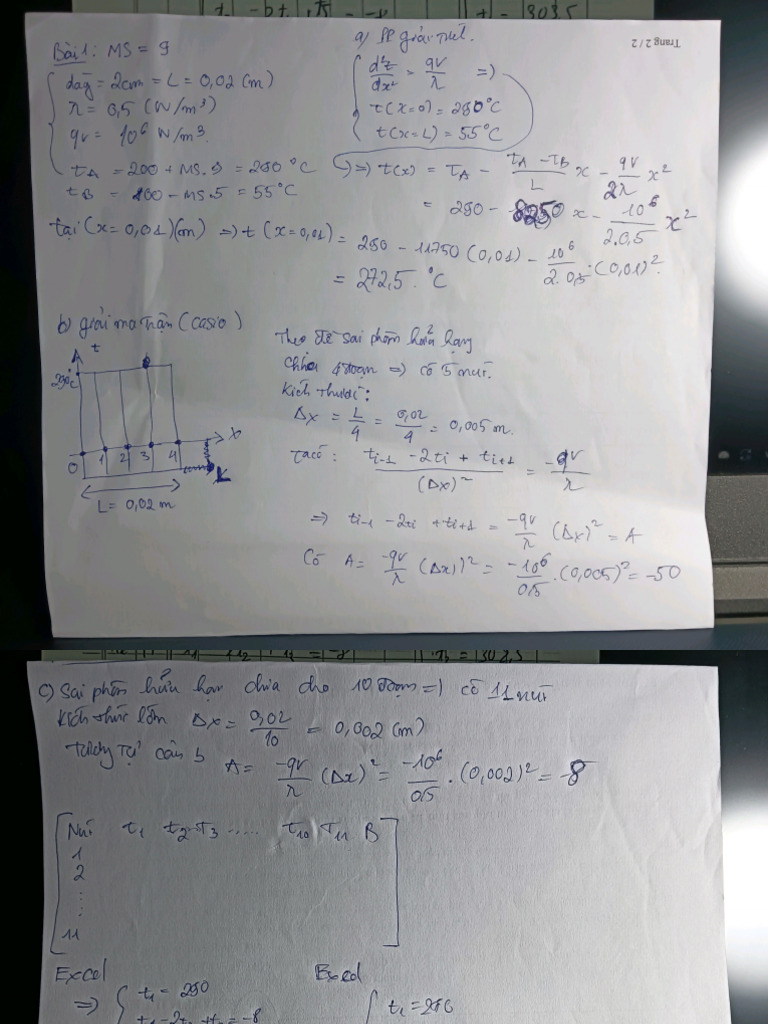 Trang 2 / 2
Bài 1: MS = 9
dày = 2cm = L = 0,02 (m)
λ = 0,5 (W/m³)
qv = 10⁶ W/m³.
tA = 200 + MS.9 = 290 °C
tB = 100 - MS.5 = 55°C
a) PP giải tích.
d²t/dx² = qv/λ =>
t(x=0) = 290°C
t(x=L) = 55°C
=> t(x) = TA - (tA - TB)/L x - qv/2λ x²
= 290 - 8250 x - 10⁶/2.0,5 x²
tại (x = 0,01)(m) => t (x=0,01) = 290 - 11750 (0,01) - 10⁶/2.0,5 . (0,01)².
= 272,5. °C
b) giải ma trận (casio)
t
290°C
x
0 1 2 3 4
L = 0,02 m
Theo đề sai phân hữu hạn
Chia 4 đoạn => có 5 nút.
Kích thước:
Δx = L/4 = 0,02/4 = 0,005 m.
Ta có: (ti-1 - 2ti + ti+1)/(Δx)² = -qv/λ
=> ti-1 - 2ti + ti+1 = -qv/λ (Δx)² = A
Có A = -qv/λ (Δx)² = -10⁶/0,5 . (0,005)² = -50
c) Sai phân hữu hạn chia cho 10 đoạn => có 11 nút
Kích thước lớn Δx = 0,02/10 = 0,002 (m)
Tương tự câu b
A = -qv/λ (Δx)² = -10⁶/0,5 . (0,002)² = -8
Nút t1 t2 T3 ..... t10 T11 B
1
2
⋮
11
Excel
=> t1 = 290
Excel
t1 = 290